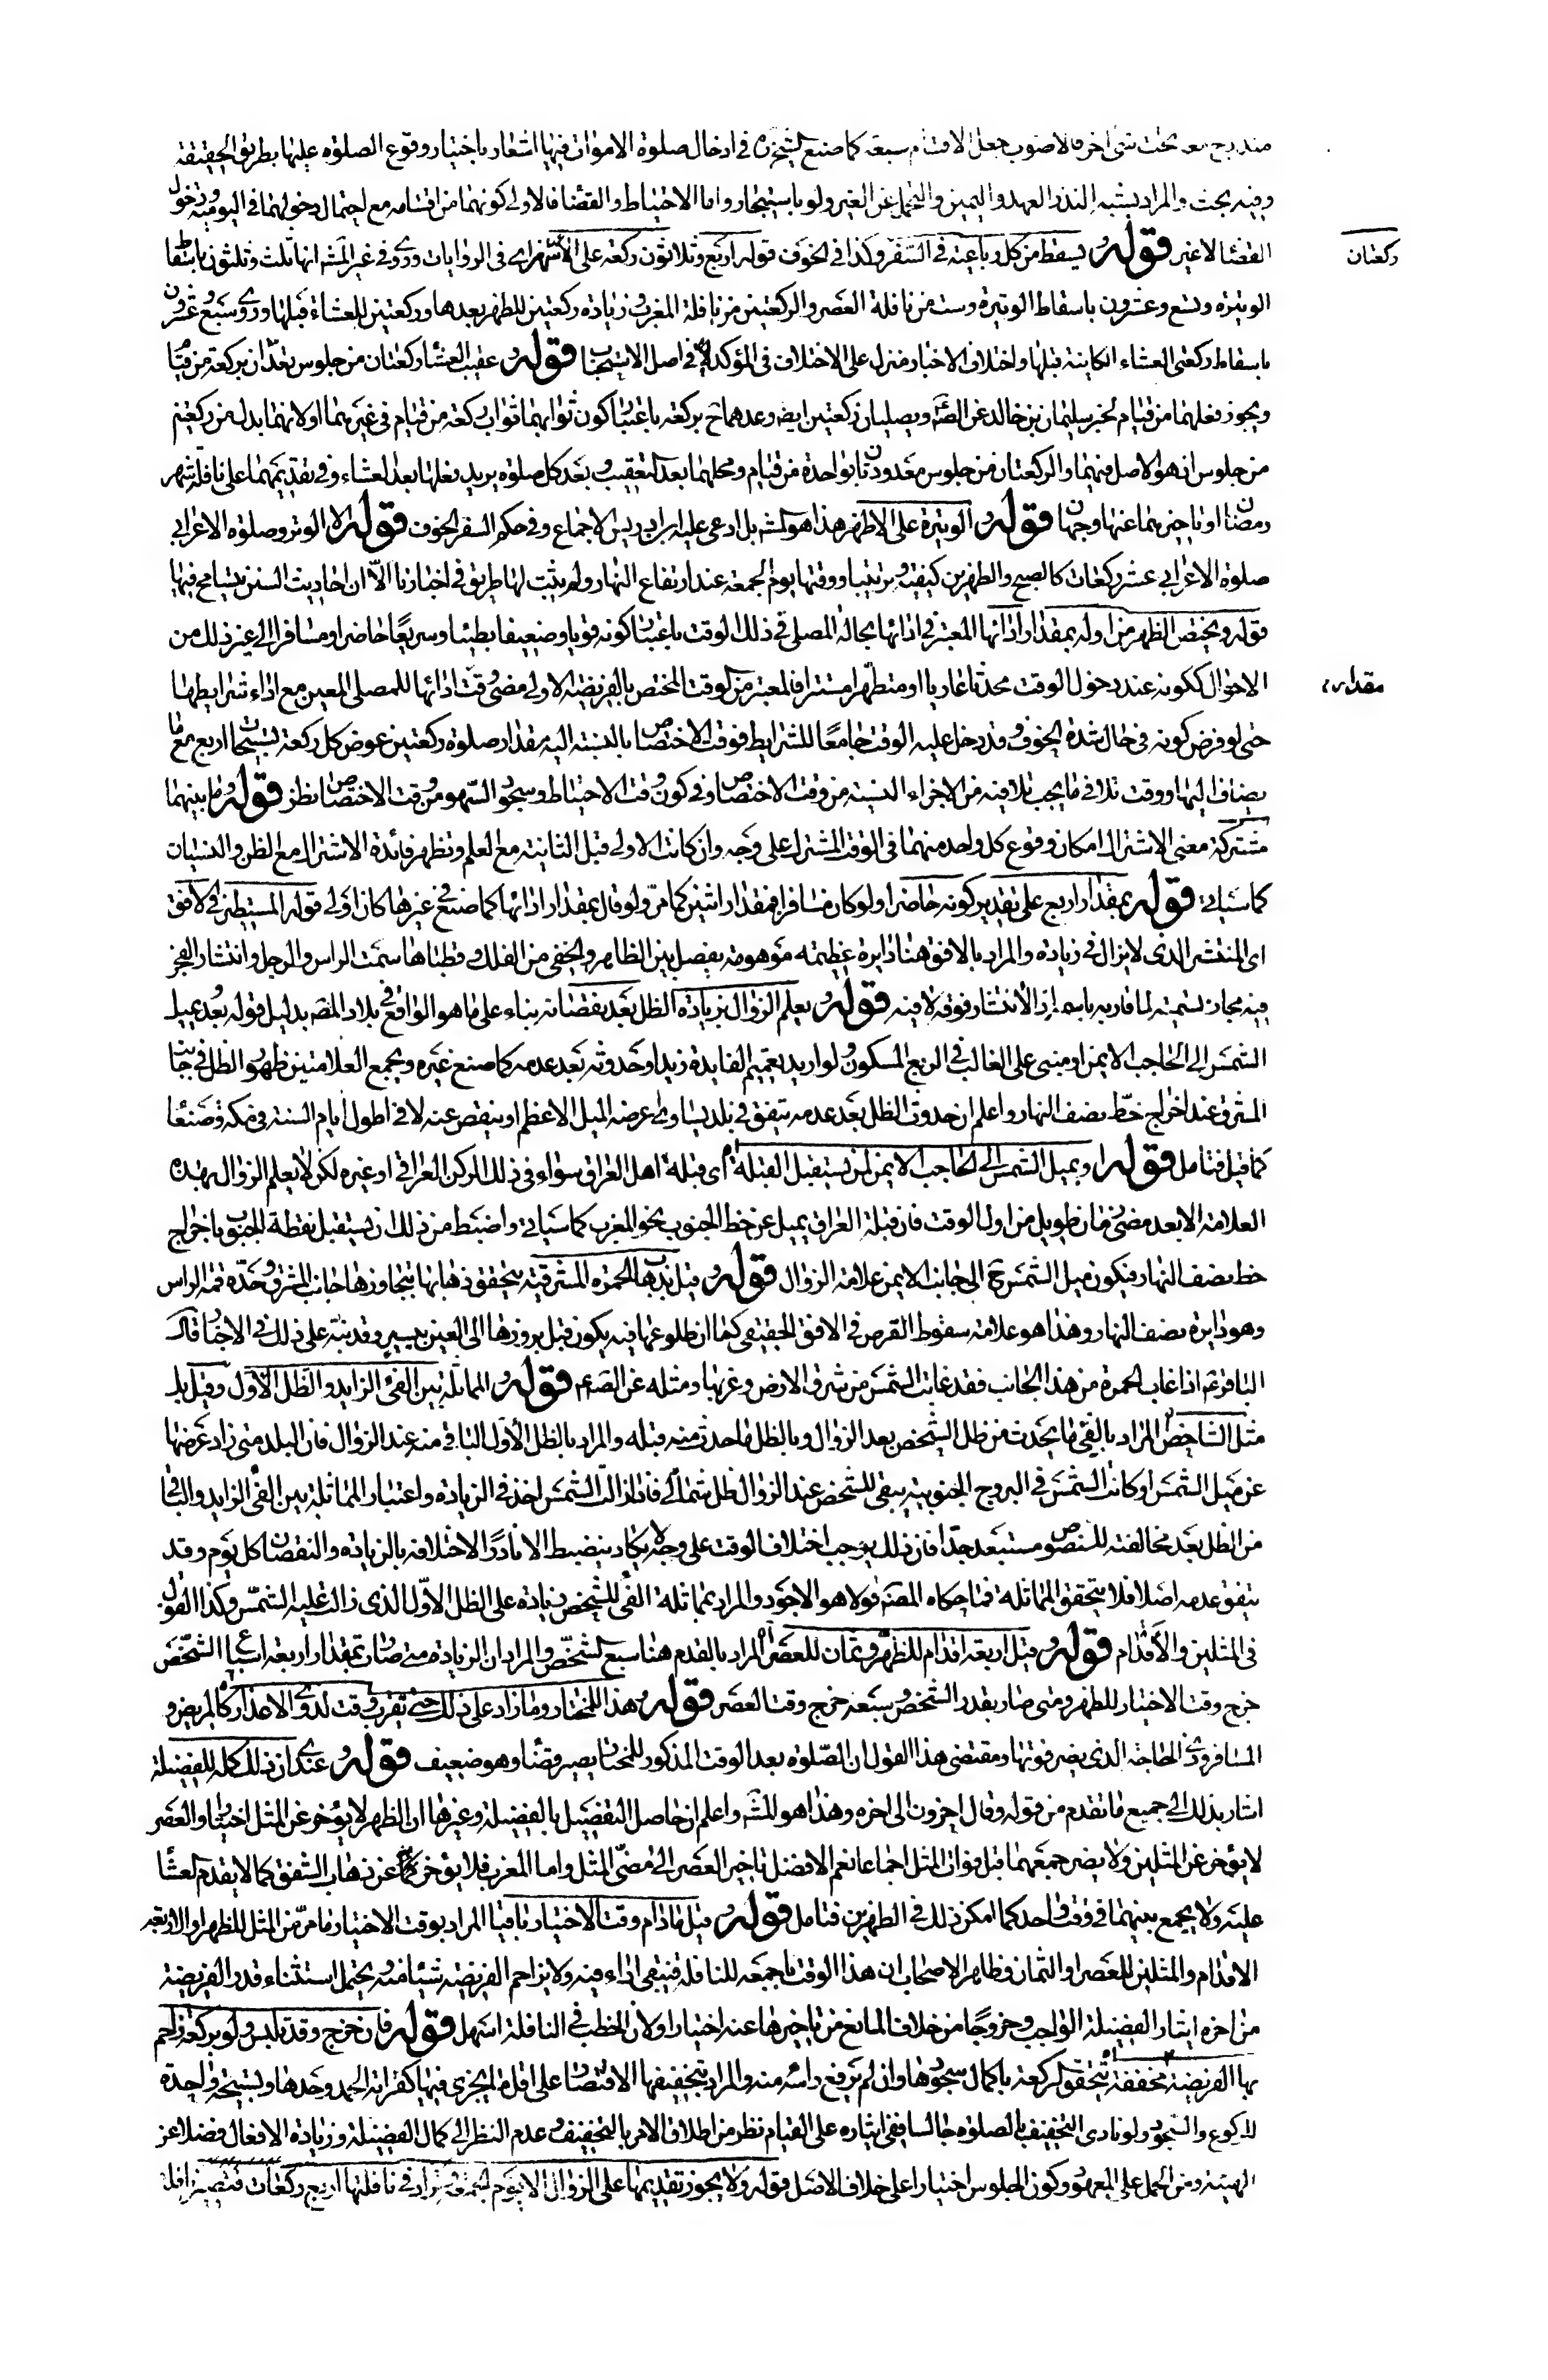 مندرج معه تحت شئ اخر فالاصوب جعل الاقسام سبعة كما صنع الشيخ ره في ادخال صلوة الاموات فيها اشعار باختيار وقوع الصلوة عليها بطريق الحقيقة
وفيه بحث والمراد بشبه النذر العهد واليمين والتحمل عن الغير ولو باستيجار واما الاحتياط والقضاء فالاولى كونهما من اقسامه مع احتمال دخولهما في اليومية ودخول
القضاء لا غير قوله ويسقط من كل رباعية في السفر ركعتان وكذا في الخوف قوله اربع وثلاثون ركعة على الاشهر اى في الروايات وروى في غير المشهور انها ثلث وثلثون باسقاط
الوتيرة وتسع وعشرون باسقاط الوتيرة وست من نافلة العصر والركعتين من نافلة المغرب وزيادة ركعتين للظهر بعدها وركعتين للعشاء قبلها وروى سبع وعشرون
باسقاط ركعتى العشاء الكاينة قبلها واختلاف الاخبار منزل على الاختلاف في المؤكد لا في اصل الاستحباب قوله وعقيب العشاء ركعتان من جلوس تعدان بركعة من قيام
ويجوز فعلهما من قيام لخبر سليمان بن خالد عن الصادق ويصليان ركعتين ايضا وعدهما ح بركعة باعتبار كون ثوابهما ثواب ركعة من قيام في غيرهما او لانهما بدل من ركعتين
من جلوس اذ هو الاصل فيهما والركعتان من جلوس معدودتان بواحدة من قيام ومحلهما بعد التعقيب وبعد كل صلوة يريد فعلها بعد العشاء وفي تقديمهما على نافلة شهر
رمضان او تاخيرهما عنها وجهان قوله والوتيرة على الاظهر هذا هو المشهور بل ادعى عليه ابن ادريس الاجماع وفي حكم السفر الخوف قوله الا الوتر وصلوة الاعرابي
صلوة الاعرابي عشر ركعات كالصبح والظهرين كيفية وترتيبا ووقتها يوم الجمعة عند ارتفاع النهار ولم يثبت لها طريق في اخبارنا الا ان احاديث السنن يتسامح فيها
قوله ويختص الظهر من اوله بمقدار ادائها المعتبر في ادائها بحالة المصلي في ذلك الوقت باعتبار كونه قويا وضعيفا بطيئا وسريعا حاضرا ومسافرا الى غير ذلك من
الاحوال ككونه عند دخول الوقت محدثا عاريا او متطهرا مستترا فالمعتبر من الوقت المختص بالفريضة الاولى مضى وقت ادائها للمصلى المعين مع اداء شرايطها
حتى لو فرض كونه في حال شدة الخوف وقد دخل عليه الوقت جامعا للشرايط فوقت الاختصاص بالنسبة اليه مقدار صلوة ركعتين عوض كل ركعة تسبيحات اربع مع ما
يضاف اليها ووقت تلافي ما يجب تلافيه من الاجزاء المنسية من وقت الاختصاص وفي كون وقت الاحتياط وسجود السهو من وقت الاختصاص نظر قوله وما بينهما
مشتركة معنى الاشتراك امكان وقوع كل واحد منهما في الوقت المشترك على وجه وان كانت الاولى قبل الثانية مع العلم وتظهر فائدة الاشتراك مع الظن والنسيان
كما سياتي قوله بمقدار اربع على تقدير كونه حاضرا ولو كان مسافرا فمقدار اثنتين كما مر ولو قال بمقدار ادائها كما صنع في غيرها كان اولى قوله المستطير في الافق
اى المنتشر الذى لا يزال في زيادة والمراد بالافق هنا دايرة عظيمة موهومة يفصل بين الظاهر والخفى من الفلك وقطباها سمت الراس والرجل وانتشار الفجر
فيه مجاز تسمية لما قاربه باسمه اذ الانتشار فوقه لا فيه قوله ويعلم الزوال بزيادة الظل بعد نقصانه بناء على ما هو الواقع في بلاد المصنف بدليل قوله بعد ويميل
الشمس الى الحاجب الايمن او مبنى على الغالب في الربع المسكون ولو اريد تعميم الفايدة زيد او حدوثه بعد عدمه كما صنع غيره ويجمع العلامتين ظهور الظل في جانب
المشرق عند اخراج خط نصف النهار واعلم ان حدوث الظل بعد عدمه يتفق في بلد يساوى عرضه الميل الاعظم او ينقص عنه لا في اطول ايام السنة في مكة وصنعاء
كما قيل فتامل قوله او بميل الشمس الى الحاجب الايمن لمن يستقبل القبلة اى قبلة اهل العراق سواء في ذلك الركن العراقي او غيره لكن لا يعلم الزوال بهذه
العلامة الا بعد مضى زمان طويل من اول الوقت فان قبلة العراق يميل عن خط الجنوب نحو المغرب كما سياتي واضبط من ذلك ان يستقبل نقطة الجنوب باخراج
خط نصف النهار فيكون ميل الشمس ح الى جانبه الايمن علامة الزوال قوله وقيل بذهاب الحمرة المشرقية يتحقق ذهابها بتجاوزها جانب المشرق وحده قمة الراس
وهو دايرة نصف النهار وهذا هو علامة سقوط القرص في الافق الحقيقى كما ان طلوعها فيه يكون قبل بروزها الى العين بيسير وقد نبه على ذلك في الاخبار قال
الباقر ع اذا غاب الحمرة من هذا الجانب فقد غابت الشمس من شرق الارض وغربها ومثله عن الصادق ع قوله والمماثلة بين الفىء الزايد والظل الاول وقيل بل
مثل الشاخص المراد بالفىء ما يحدث من ظل الشخص بعد الزوال وبالظل ما حدث منه قبله والمراد بالظل الاول الباقي منه عند الزوال فان البلد متى زاد عرضها
عن ميل الشمس او كانت الشمس في البروج الجنوبية يبقى للشخص عند الزوال ظل شمالى فاذا زالت الشمس اخذ في الزيادة واعتبار المماثلة بين الفىء الزايد والباقي
من الظل بعد مخالفته للنصوص مستبعد جدا فان ذلك يوجب اختلاف الوقت على وجه لا يكاد ينضبط الا نادرا لاختلافه بالزيادة والنقصان كل يوم وقد
يتفق عدمه اصلا فلا يتحقق المماثلة فما حكاه المصنف قولا هو الاجود والمراد بمماثلة الفىء للشخص زيادة على الظل الاول الذى زالت عليه الشمس وكذا القول
في المثلين والاقدام قوله وقيل اربعة اقدام للظهر وثمان للعصر المراد بالقدم هنا سبع الشخص والمراد ان الزيادة متى صارت بمقدار اربعة اسباع الشخص
خرج وقت الاختيار للظهر ومتى صار بقدر الشخص وسبعه خرج وقت العصر قوله هذا للمختار وما زاد على ذلك حتى تقرب وقت لذوى الاعذار كالمريض و
المسافر وذى الحاجة الذى يضر فوتها ومقتضى هذا القول ان الصلوة بعد الوقت المذكور للمختار يصير قضاء وهو ضعيف قوله وعندى ان ذلك كله للفضيلة
اشار بذلك الى جميع ما تقدم من قوله وقال اخرون الى اخره وهذا هو المشهور واعلم ان حاصل التفضيل بالفضيلة وغيرها ان الظهر لا يؤخر عن المثل اختيارا والعصر
لا يؤخر عن المثلين ولا يضر جمعهما قبل فوات المثل اجماعا نعم الافضل تاخير العصر الى مضى المثل واما المغرب فلا يؤخر عن ذهاب الشفق كما لا يقدم العشاء
عليه ولا يجمع بينهما في وقت واحد كما امكن ذلك في الظهرين فتامل قوله وقيل ما دام وقت الاختيار باقيا المراد بوقت الاختيار ما مر من المثل للظهر او الاربعة
الاقدام والمثلين للعصر او الثمان وظاهر الاصحاب ان هذا الوقت باجمعه للنافلة فتبقى اداء فيه ولا يزاحم الفريضة شيئا منه ويحتمل استثناء قدر الفريضة
من اخره ايثارا لفضيلة الواجب وخروجا من خلاف المانع من تاخيرها عنه اختيارا ولان الخطب في النافلة اسهل قوله فان خرج وقد تلبس ولو بركعة زاحم
بها الفريضة مخففة يتحقق الركعة باكمال سجودها وان لم يرفع راسه منه والمراد بتخفيفها الاقتصار على اقل ما يجزى فيها كقرائة الحمد وحدها وتسبيحة واحدة
للركوع والسجود ولو تادى التخفيف بالصلوة جالسا ففى ايثاره على القيام نظر من اطلاق الامر بالتخفيف وعدم النظر الى كمال الفضيلة وزيادة الافعال فضلا عن
الهيئة ومن الحمل على المعهود وكون الجلوس اختيارا على خلاف الاصل قوله ولا يجوز تقديمها على الزوال الا يوم الجمعة ويزاد في نافلتها اربع ركعات
ركعتان
مقدار